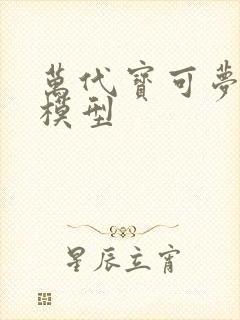 萬代寶可夢
模型
星辰立宵